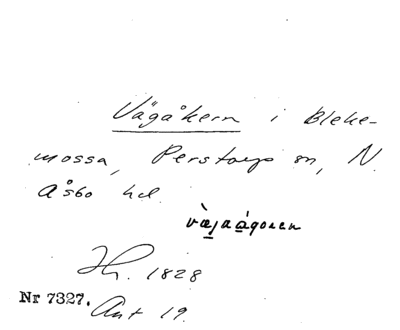 Vägåkern i Bleke-
mossa, Perstorp sn, N.
Åsbo hd.
væjaågoren
Hr. 1828
Nr 7327. Ant 19.